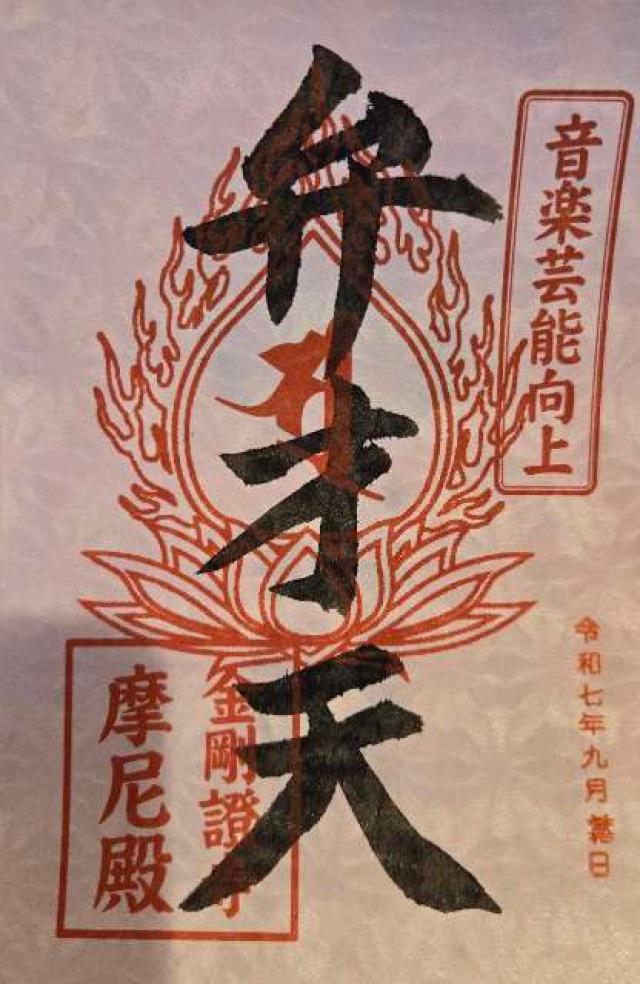 音楽芸能向上
弁才天
令和七年九月
金剛證寺
摩尼殿